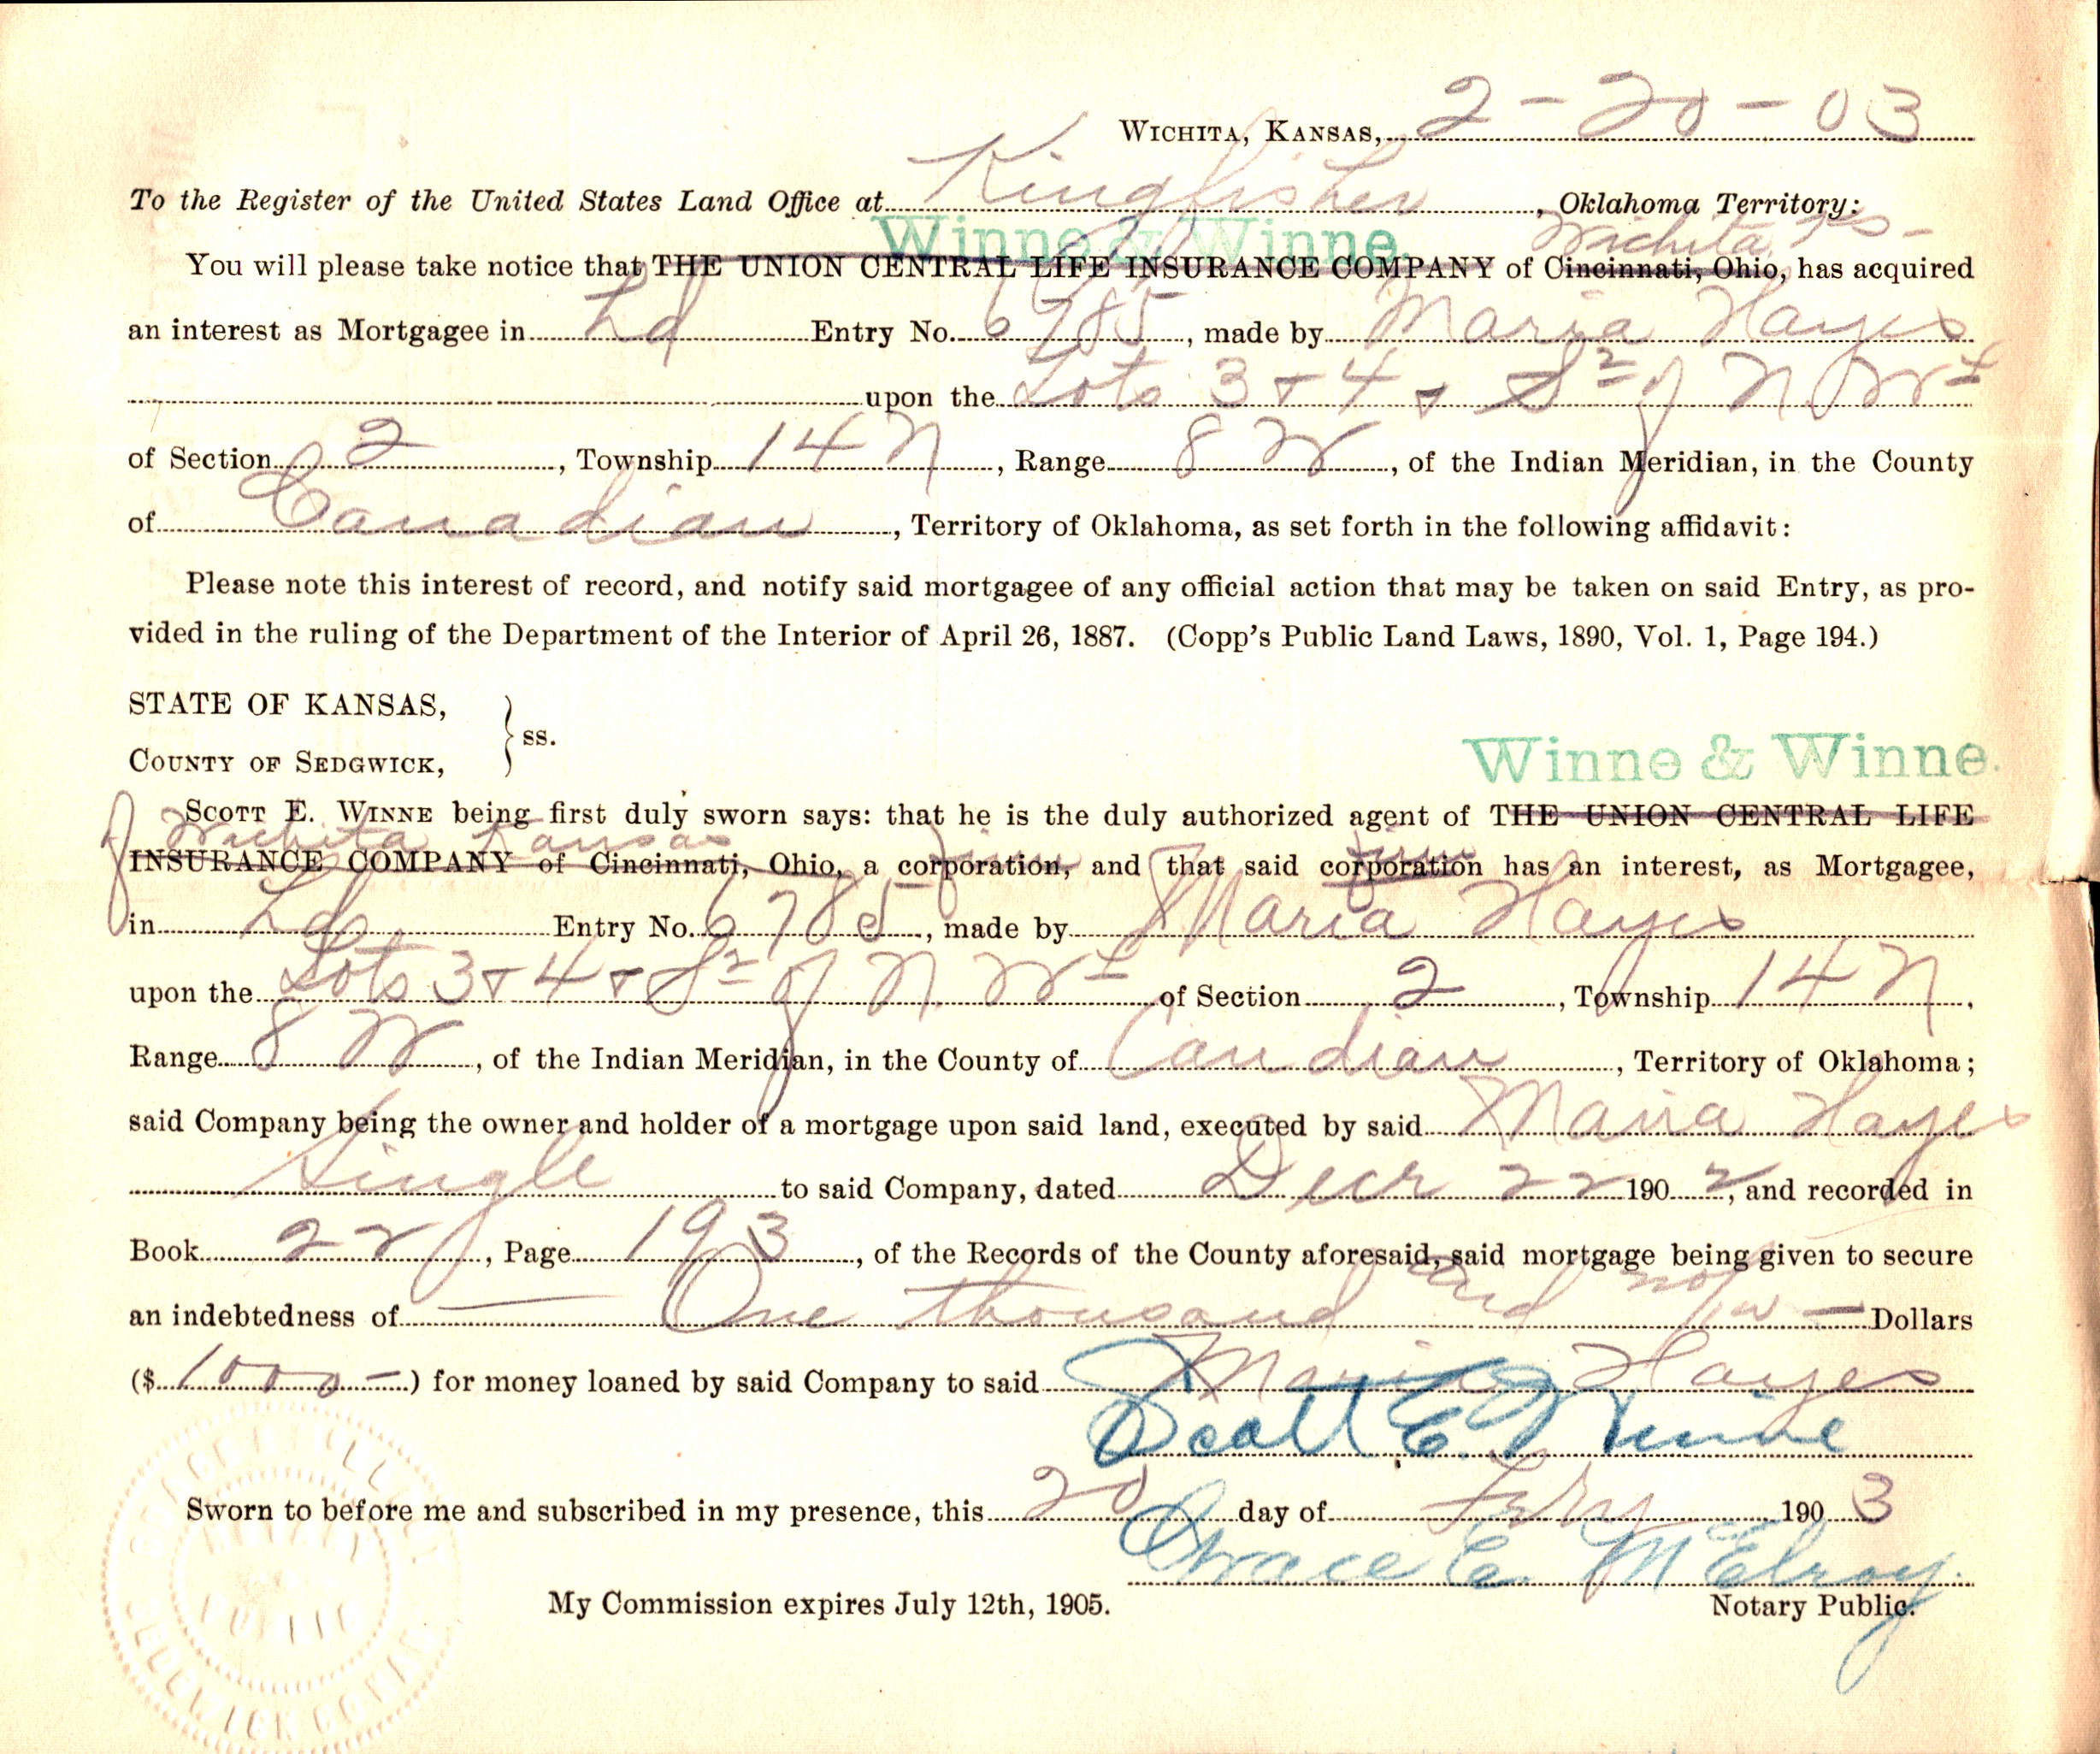 WICHITA, KANSAS, 2-20-03
To the Register of the United States Land Office at Kingfisher, Oklahoma Territory:
Winne & Winne. Wichita Ks-
You will please take notice that THE UNION CENTRAL LIFE INSURANCE COMPANY of Cincinnati, Ohio, has acquired
an interest as Mortgagee in Hd Entry No. 6785, made by Maria Hayes
upon the Lots 3 + 4 + S2 of N W 4
of Section 2, Township 14 N, Range 8 W, of the Indian Meridian, in the County
of Canadian, Territory of Oklahoma, as set forth in the following affidavit:
Please note this interest of record, and notify said mortgagee of any official action that may be taken on said Entry, as pro-
vided in the ruling of the Department of the Interior of April 26, 1887. (Copp's Public Land Laws, 1890, Vol. 1, Page 194.)
STATE OF KANSAS,
COUNTY OF SEDGWICK, } ss.
Winne & Winne.
SCOTT E. WINNE being first duly sworn says: that he is the duly authorized agent of THE UNION CENTRAL LIFE
of Wichita Kansas firm firm
INSURANCE COMPANY of Cincinnati, Ohio, a corporation, and that said corporation has an interest, as Mortgagee,
in Hd Entry No. 6785, made by Maria Hayes
upon the Lots 3 + 4 + S2 of N W 4 of Section 2, Township 14 N,
Range 8 W, of the Indian Meridian, in the County of Candian, Territory of Oklahoma;
said Company being the owner and holder of a mortgage upon said land, executed by said Maria Hayes
Single to said Company, dated Decr 22 1902, and recorded in
Book 22, Page 193, of the Records of the County aforesaid, said mortgage being given to secure
an indebtedness of One thousand and no/100 Dollars
($1000-) for money loaned by said Company to said Maria Hayes
Scott E. Winne
Sworn to before me and subscribed in my presence, this 20 day of Febry 1903
Grace E. McElroy.
My Commission expires July 12th, 1905. Notary Public.
NOTARY
PUBLIC
SEDGWICK CO. KAS.